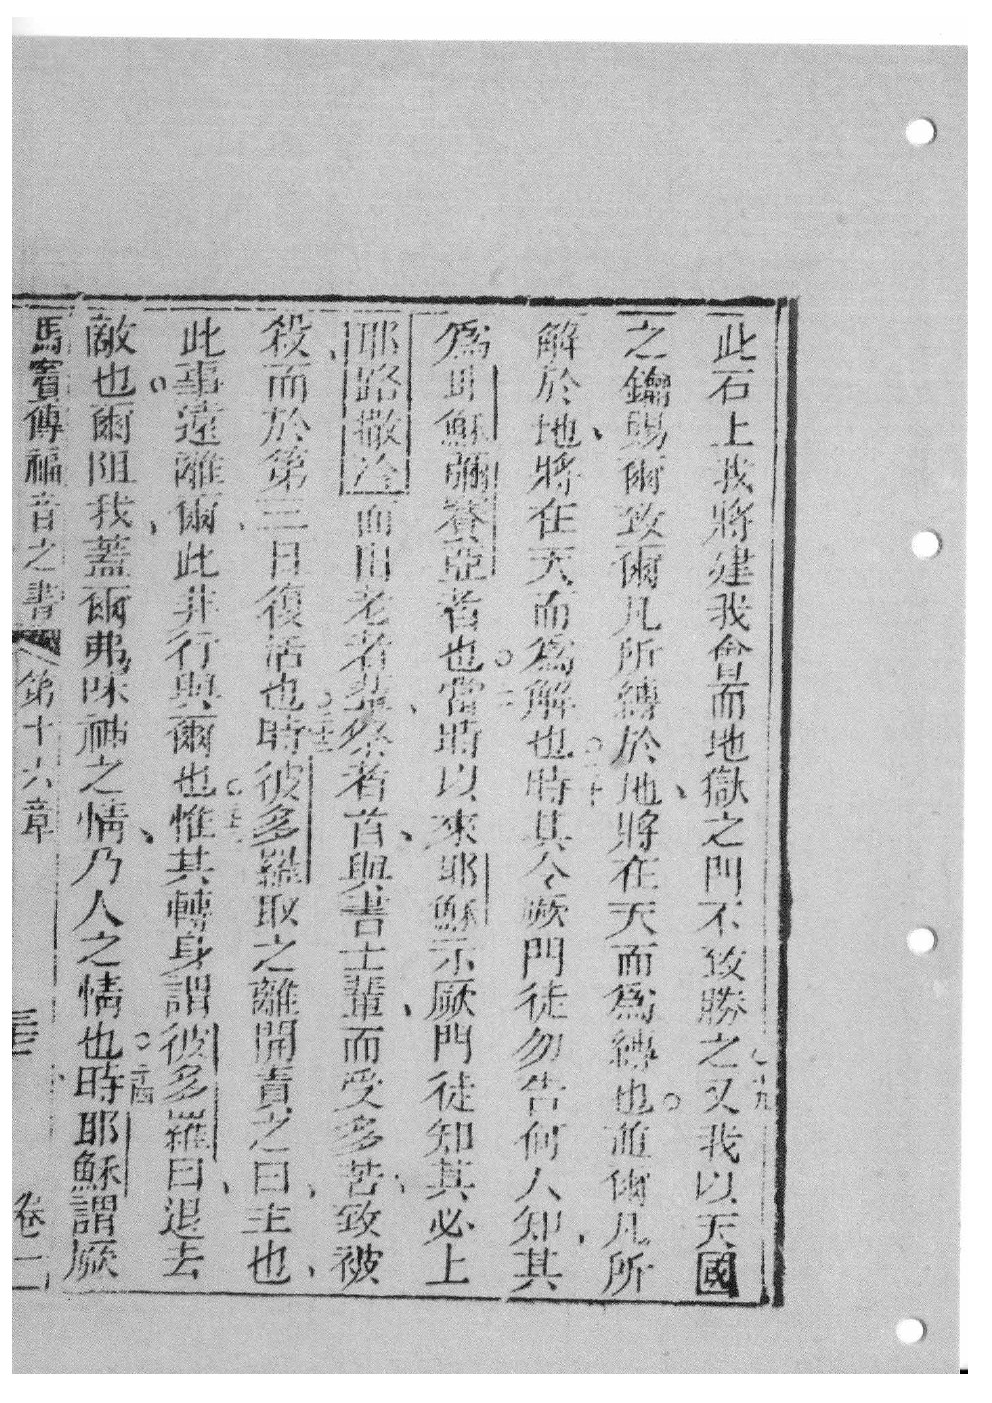 此石上我將建我會而地獄之門不致勝之○十九又我以天國
之鑰賜爾致爾凡所縛於地、將在天而為縛也○並爾凡所
解於地、將在天而為解也○二十時其令厥門徒勿告何人知、其
為耶穌彌賽亞者也○二一當時以來耶穌示厥門徒知其必上
耶路撒冷而由老者輩、祭者首、與書士輩、而受多苦、致被
殺、而於第三日復活也○二十二時彼多羅取之離開責之曰、主也、
此事遠離爾、此非行與爾也○二三惟其轉身謂彼多羅曰、退去
敵也○爾阻我、蓋爾弗味神之情、乃人之情也○二四時耶穌謂厥
馬竇傳福音之書 第十六章 卷一